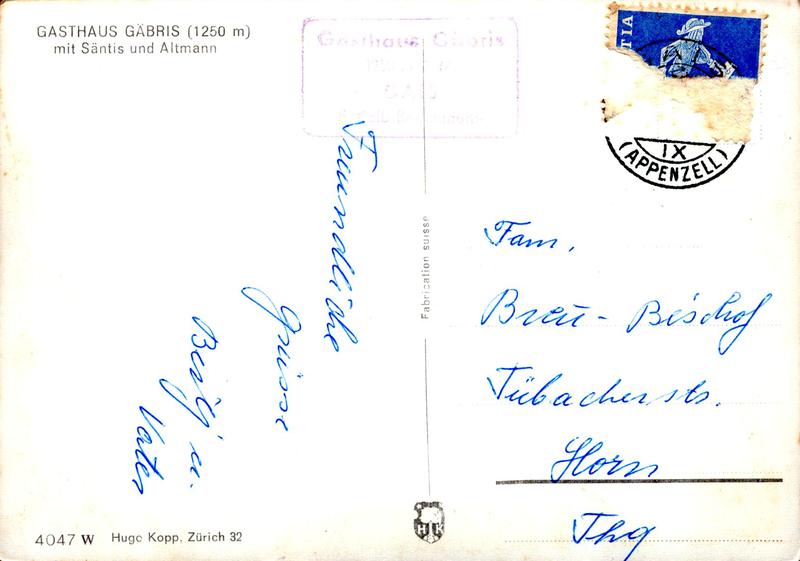 GASTHAUS GÄBRIS (1250 m)
mit Säntis und Altmann
Gasthaus Gäbris
GAIS
TIA
IX
(APPENZELL)
Freundliche
Grüsse
u.
Vater
Fabrication suisse
Fam.
Breu - Bischof
Tübacherstr.
Horn
Thg
HK
4047 W Hugo Kopp, Zürich 32